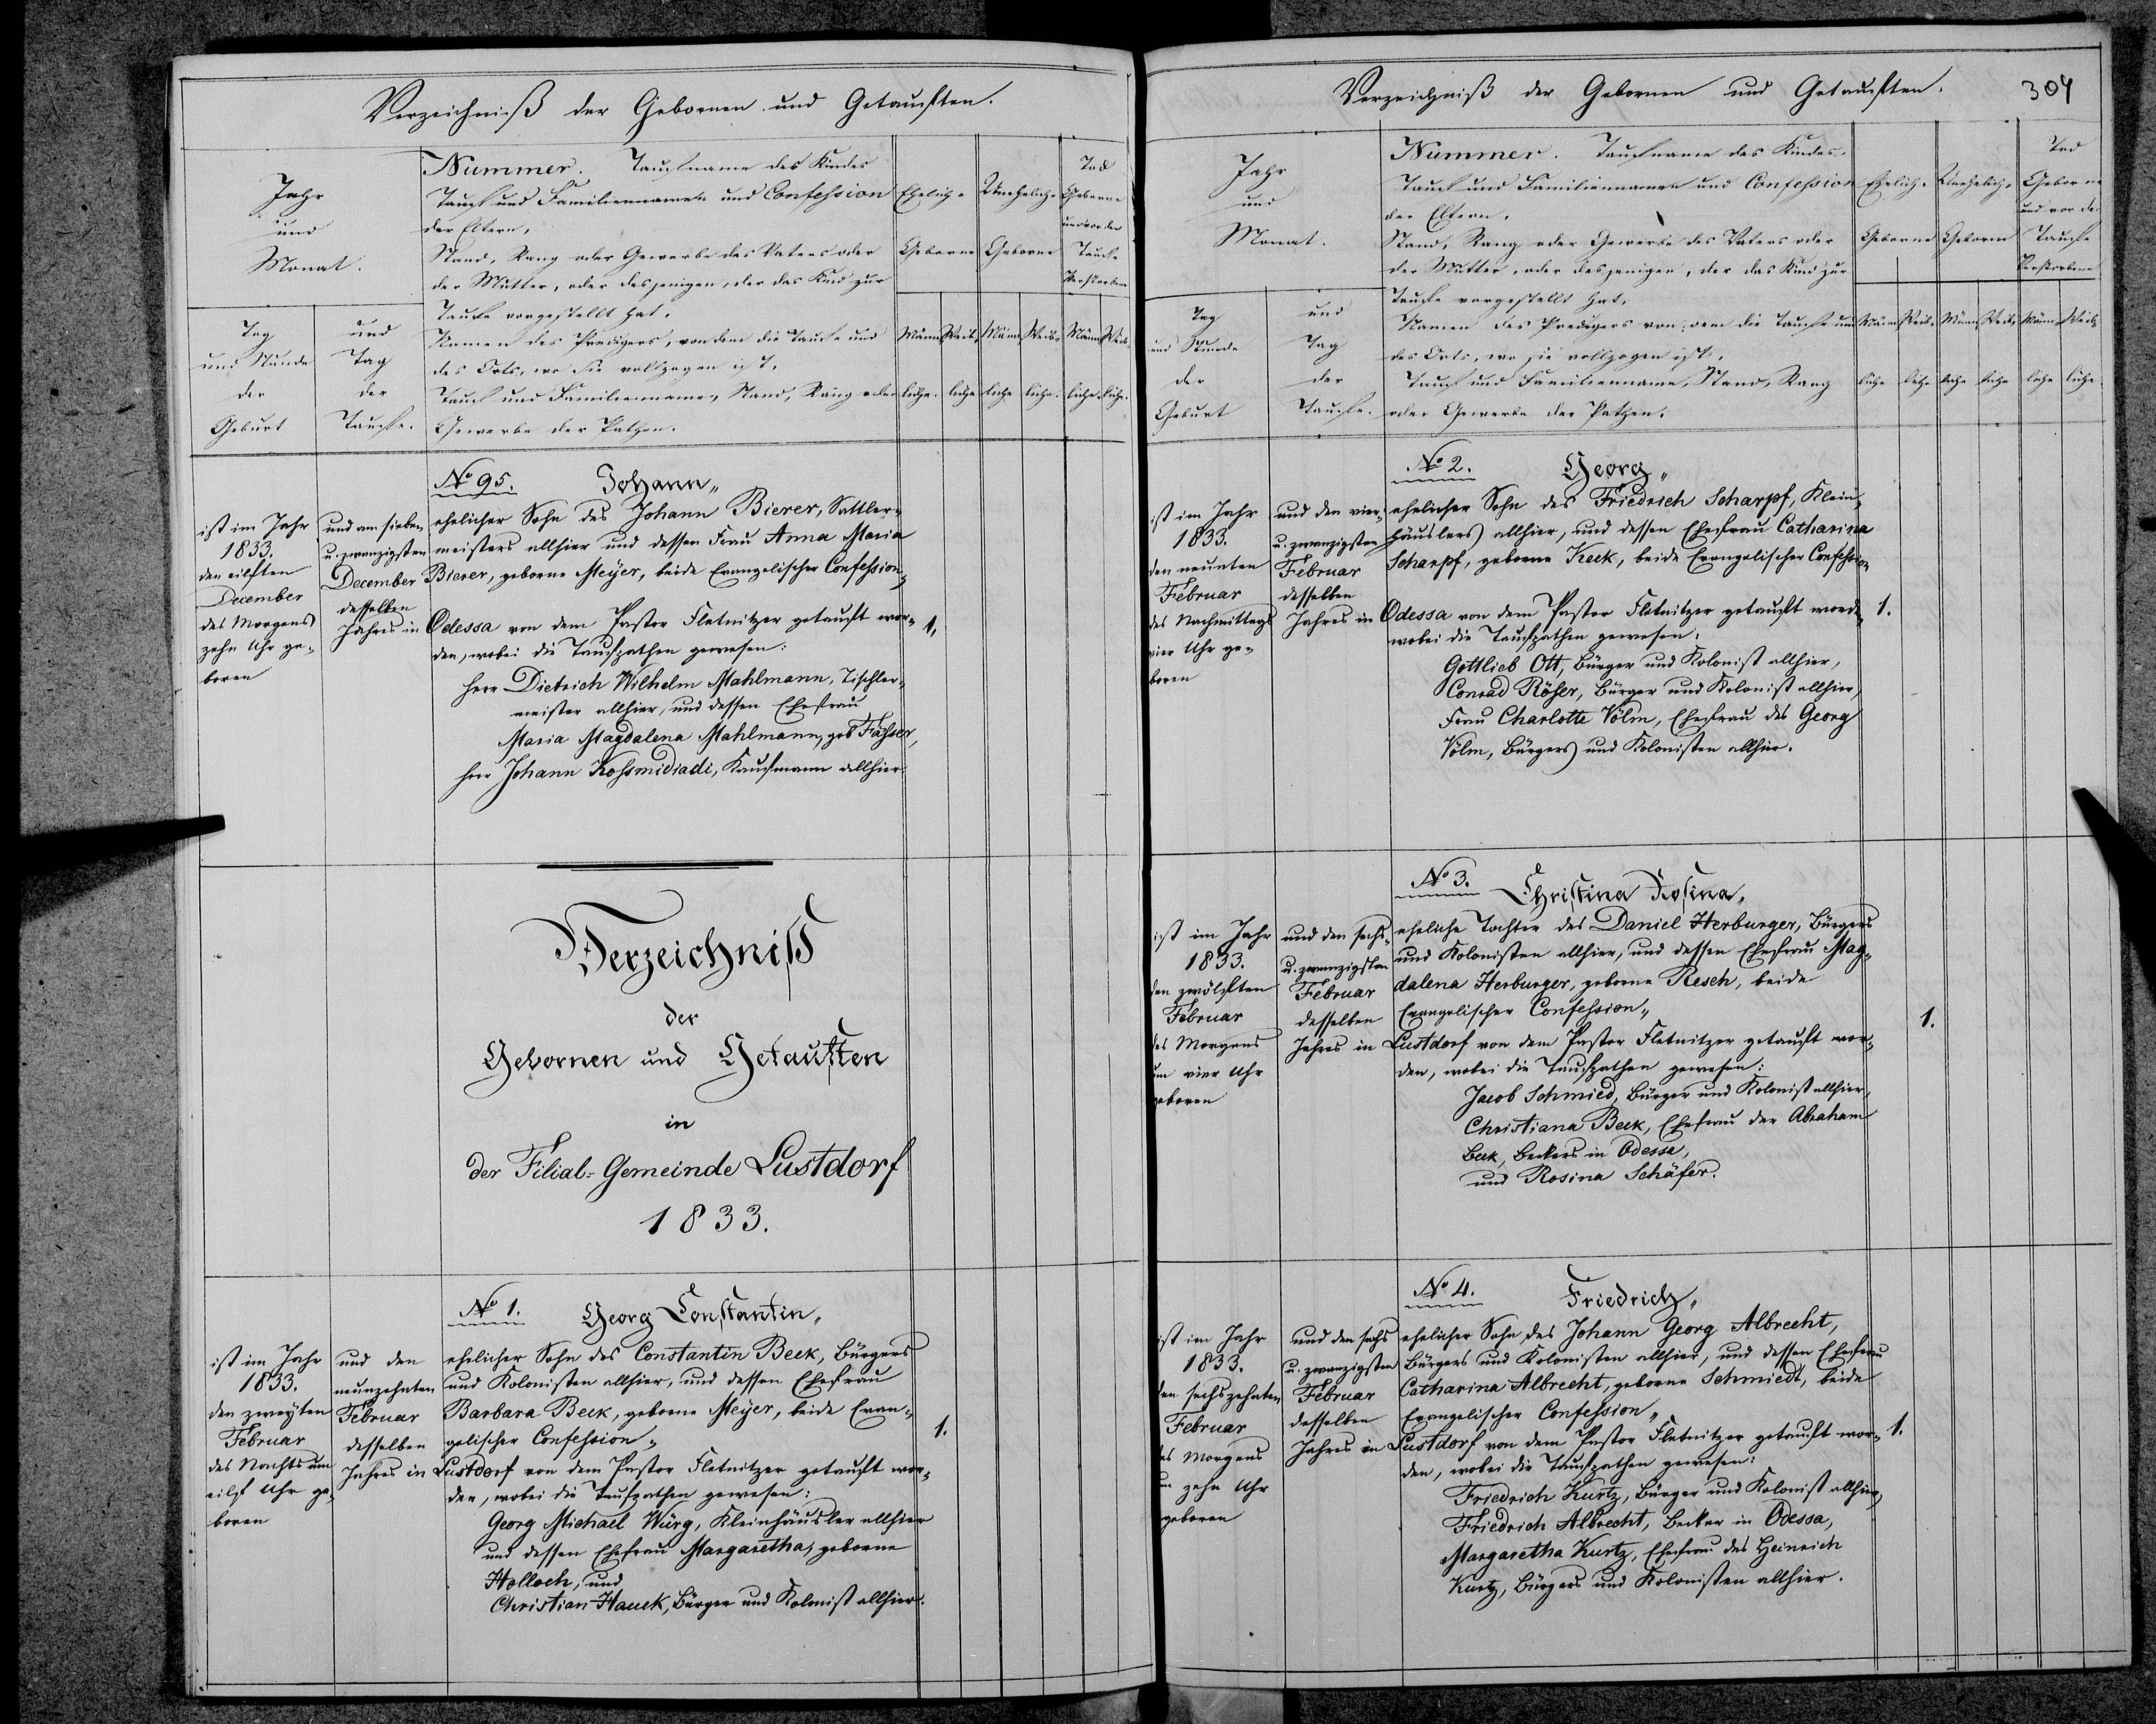 Verzeichniß der Gebornen und Getauften.
Jahr
und
Monat.
Tag
und Stunde
der
Geburt
und
Tag
der
Taufe.
Nummer. Taufname des Kindes
Tauf und Familiennamen und Confession
der Eltern,
Stand, Rang oder Gewerbe des Vaters oder
der Mutter, oder desjenigen, der das Kind zur
Taufe vorgestellt hat.
Namen des Predigers, von dem die Taufe und
des Orts, wo sie vollzogen ist,
Tauf und Familienname, Stand, Rang oder
Gewerbe der Pathen.
Ehelich-
Geborne
Unehelich-
Geborne
Tod
Geborne
und vor der
Taufe
Verstorbene
Männ- Weib- Männ- Weib- Männ- Weib-
liche. liche liche liche. liche. liche.
ist im Jahr
1833.
den eilften
December
des Morgens
zehn Uhr ge-
boren
und am sieben
u. zwanzigsten
December
desselben
Jahres in
No 95. Johann,
ehelicher Sohn des Johann Bierer, Sattler-
meisters allhier und dessen Frau Anna Maria
Bierer, geborne Meyer, beide Evangelischer Confession,
Odessa von dem Pastor Fletnitzer getauft wor-
den, wobei die Taufpathen gewesen:
Herr Dietrich Wilhelm Mahlmann, Tischler-
meister allhier, und dessen Ehefrau
Maria Magdalena Mahlmann, geb Fähser,
Herr Johann Kossmidiadi, Kaufmann allhier
1.
Verzeichniß
der
Gebornen und Getauften
in
der Filial-Gemeinde Lustdorf
1833.
ist im Jahr
1833.
den zweyten
Februar
des Nachts um
eilf Uhr ge-
boren
und den
neunzehnten
Februar
desselben
Jahres in
No 1. Georg Constantin,
ehelicher Sohn des Constantin Beck, Bürgers
und Kolonisten allhier, und dessen Ehefrau
Barbara Beck, geborne Meyer, beide Evan-
gelischer Confession,
Lustdorf von dem Pastor Fletnitzer getauft wor-
den, wobei die Taufpathen gewesen:
Georg Michael Würg, Kleinhäusler allhier
und dessen Ehefrau Margaretha, geborne
Holloch, und
Christian Hauck, Bürger und Kolonist allhier.
1.
Verzeichniß der Gebornen und Getauften.
304
Jahr
und
Monat.
Tag
und Stunde
der
Geburt
und
Tag
der
Taufe.
Nummer. Taufname des Kindes.
Tauf und Familiennamen und Confession
der Eltern,
Stand, Rang oder Gewerbe des Vaters oder
der Mutter, oder desjenigen, der das Kind zur
Taufe vorgestellt hat,
Namen des Predigers von dem die Taufe und
des Orts, wo sie vollzogen ist,
Tauf und Familienname, Stand, Rang
oder Gewerbe der Pathen.
Ehelich-
Geborne
Unehelich-
Geborne
Tod
Geborne
und vor der
Taufe
Verstorbene
Männ- Weib- Männ- Weib- Männ- Weib-
liche liche liche liche liche liche.
ist im Jahr
1833.
den neunten
Februar
des Nachmittags
vier Uhr ge-
boren
und den vier-
u. zwanzigsten
Februar
desselben
Jahres in
No 2. Georg,
ehelicher Sohn des Friedrich Scharpf, Klein-
häuslers allhier, und dessen Ehefrau Catharina
Scharpf, geborne Keck, beide Evangelischer Confession
Odessa von dem Pastor Fletnitzer getauft worden
wobei die Taufpathen gewesen:
Gottlieb Ott, Bürger und Kolonist allhier,
Conrad Röser, Bürger und Kolonist allhier,
Frau Charlotte Völm, Ehefrau des Georg
Völm, Bürgers und Kolonisten allhier.
1.
ist im Jahr
1833.
den zwölften
Februar
des Morgens
um vier Uhr
geboren
und den sechs-
u. zwanzigsten
Februar
desselben
Jahres in
No 3. Christina Rosina,
eheliche Tochter des Daniel Herburger, Bürgers
und Kolonisten allhier, und dessen Ehefrau Mag-
dalena Herburger, geborne Resch, beide
Evangelischer Confession,
Lustdorf von dem Pastor Fletnitzer getauft wor-
den, wobei die Taufpathen gewesen:
Jacob Schmied, Bürger und Kolonist allhier,
Christiana Beck, Ehefrau der Abraham
Beck, Beckers in Odessa,
und Rosina Schäfer.
1.
ist im Jahr
1833.
den sechszehnten
Februar
des Morgens
um zehn Uhr
geboren
und den sechs
u. zwanzigsten
Februar
desselben
Jahres in
No 4. Friedrich,
ehelicher Sohn des Johann Georg Albrecht,
Bürgers und Kolonisten allhier, und dessen Ehefrau
Catharina Albrecht, geborne Schmiedt, beide
Evangelischer Confession,
Lustdorf von dem Pastor Fletnitzer getauft wor-
den, wobei die Taufpathen gewesen:
Friedrich Kurtz, Bürger und Kolonist allhier,
Friedrich Albrecht, Becker in Odessa,
Margaretha Kurtz, Ehefrau des Heinrich
Kurtz, Bürgers und Kolonisten allhier.
1.